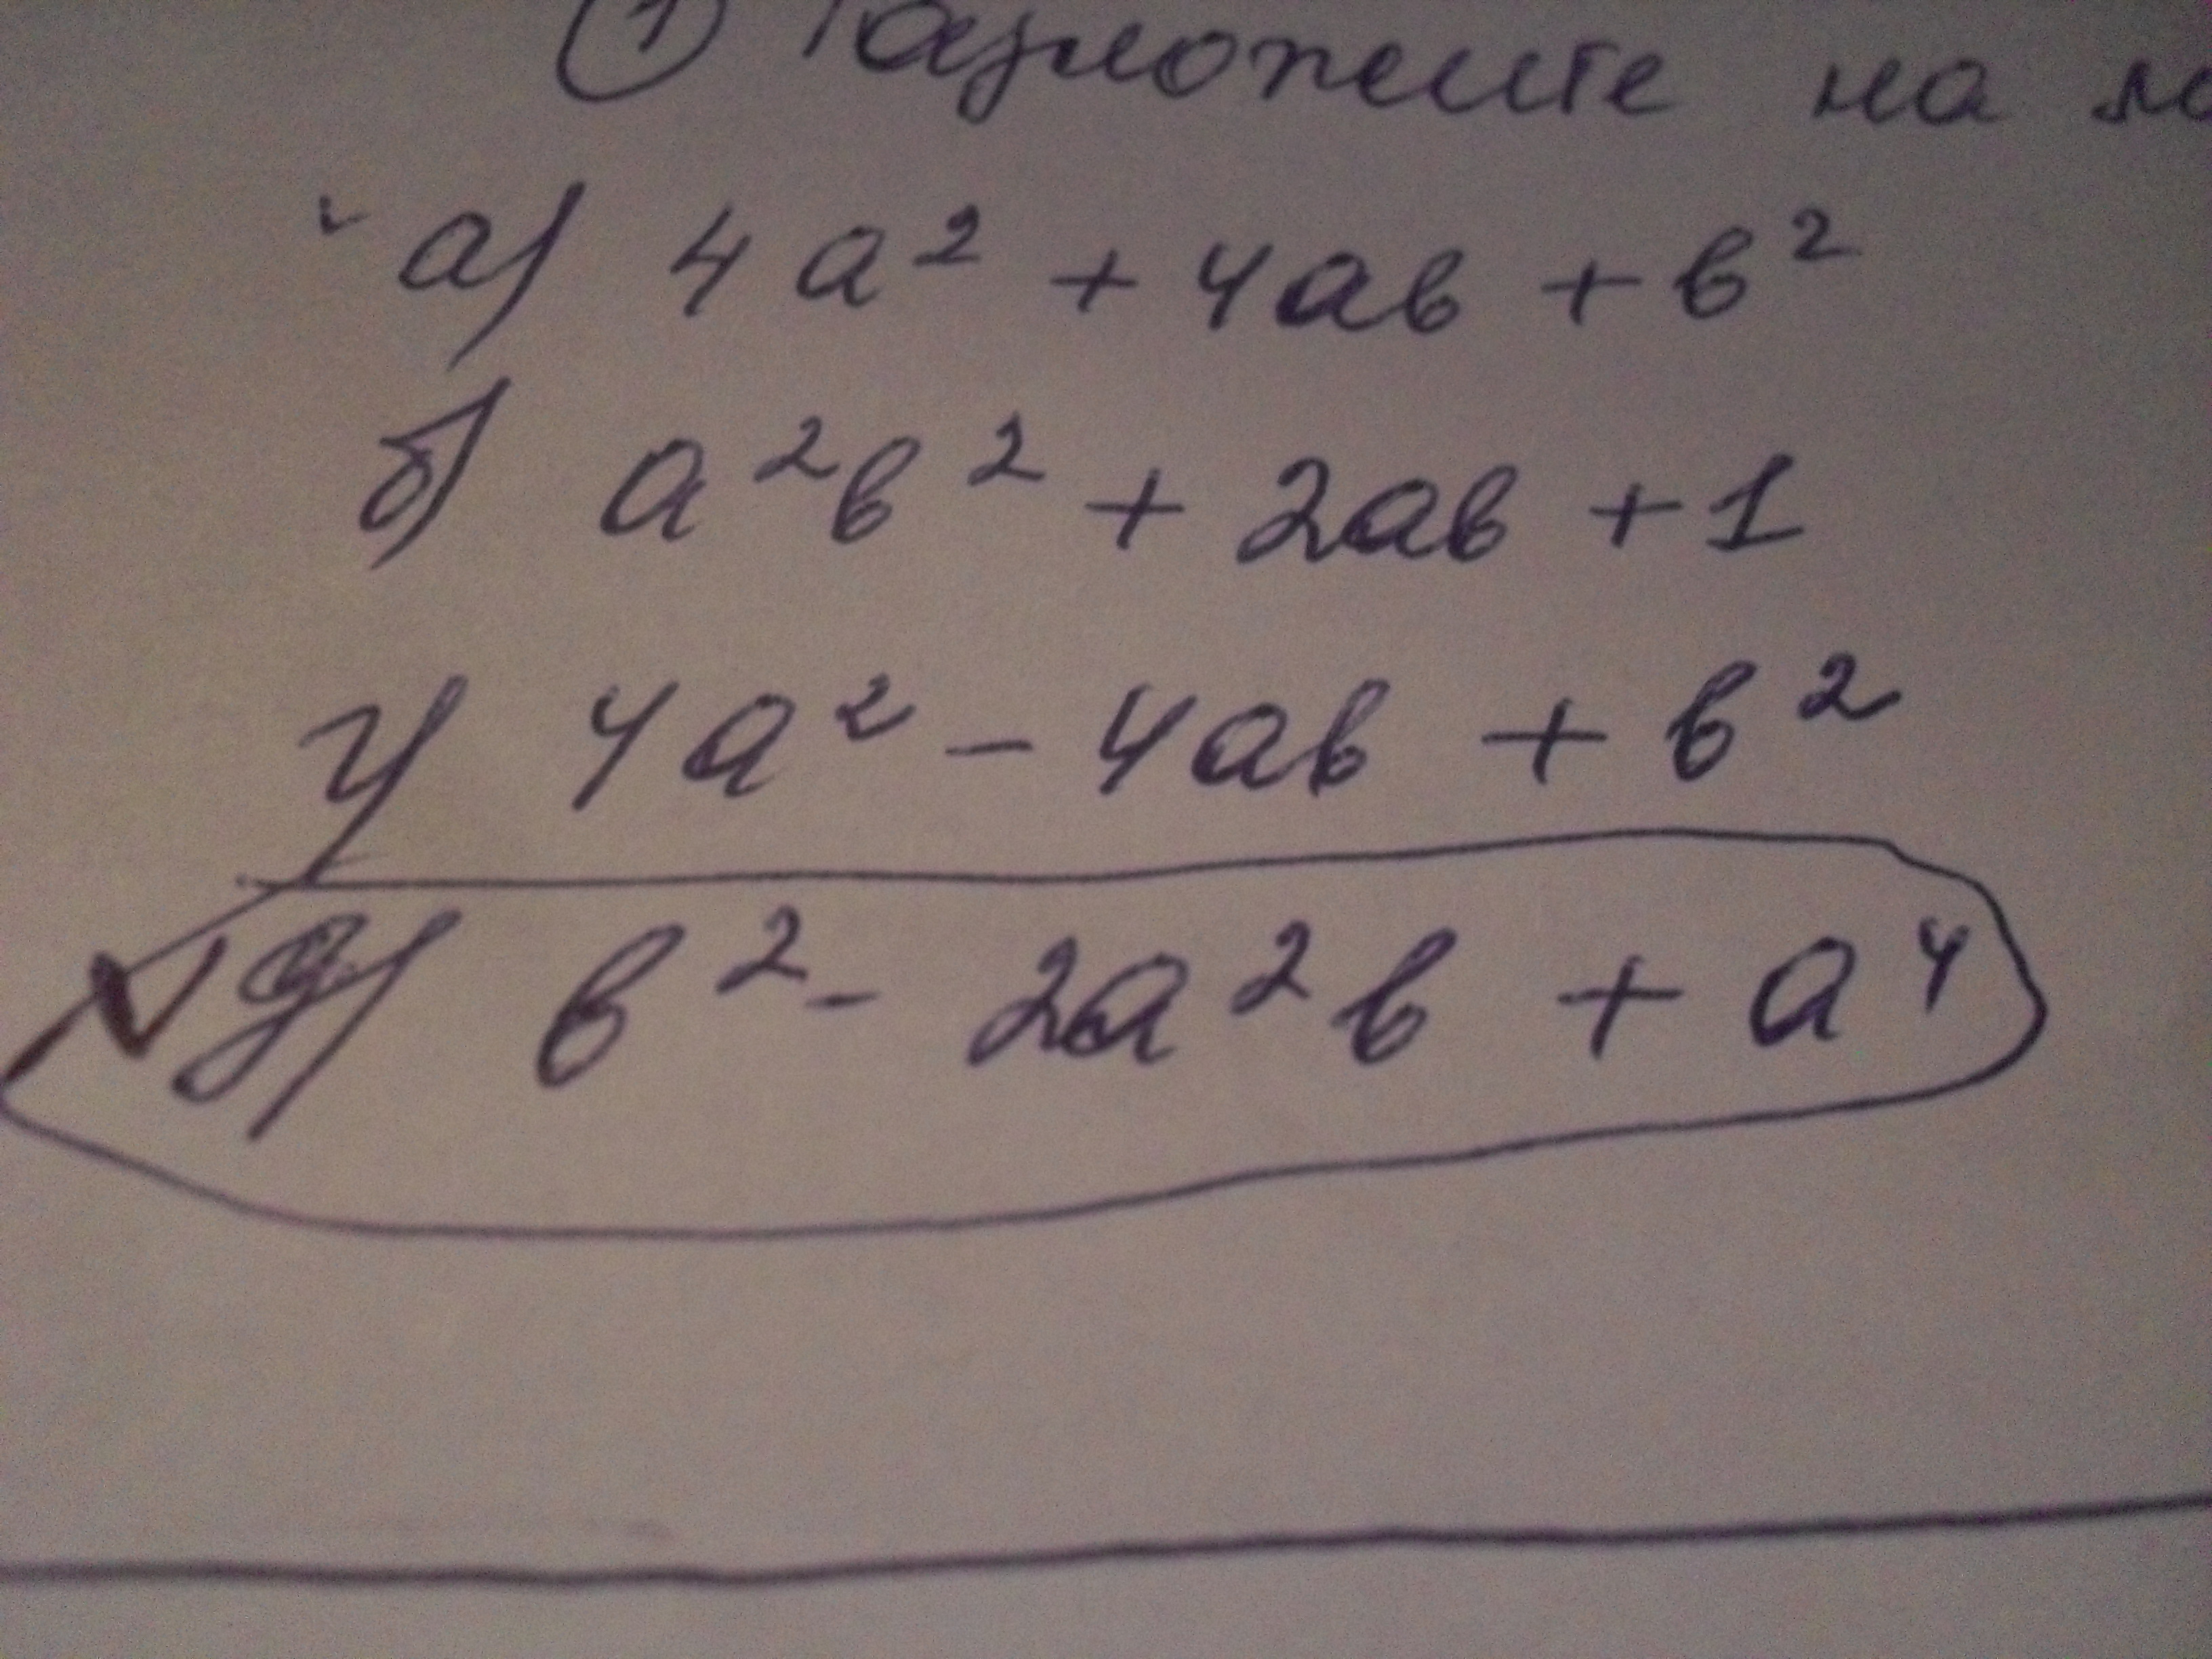 ① Разложите на
а) 4a² + 4ab + b²
б) a²b² + 2ab + 1
г) 4a² - 4ab + b²
д) b² - 2a²b + a⁴